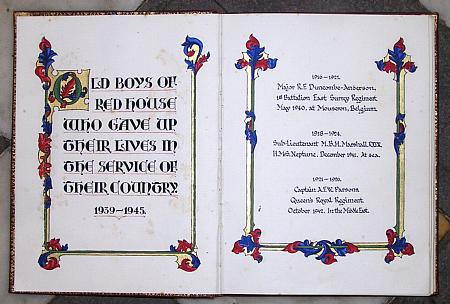 OLD BOYS OF
RED HOUSE
WHO GAVE UP
THEIR LIVES IN
THE SERVICE OF
THEIR COUNTRY
1939~1945.
1916~1921.
Major R.F. Duncombe-Anderson,
1st Battalion East Surrey Regiment
May 1940, at Mouscron, Belgium.
1918~1924.
Sub-Lieutenant M.B.H. Marshall, R.N.V.R.
H.M.S. Neptune, December 1941. At sea.
1921~1926.
Captain A.F.W. Parsons
Queen's Royal Regiment.
October 1942. In the Middle East.